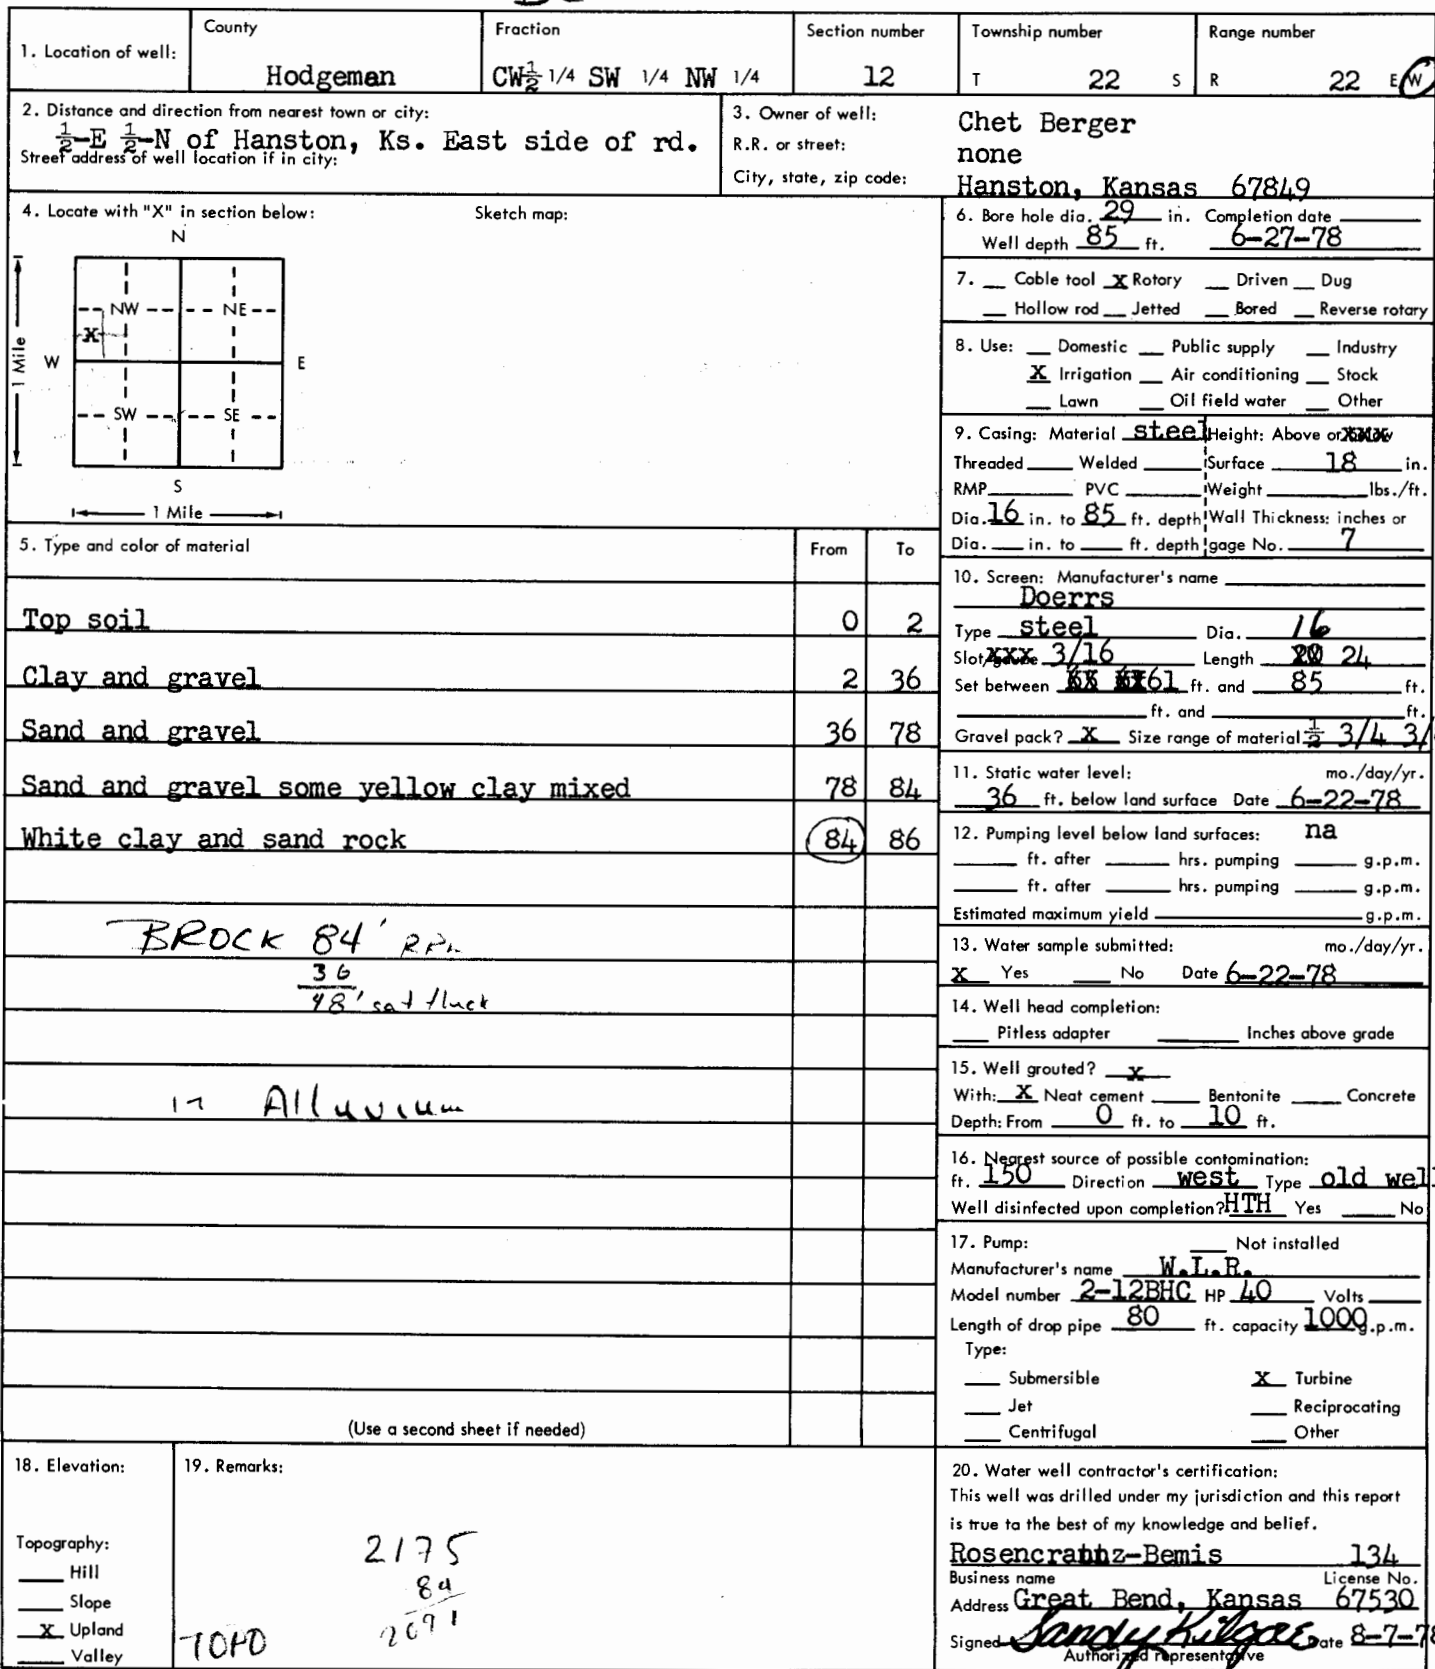 1. Location of well:
County
Hodgeman
Fraction
CW½ 1/4 SW 1/4 NW 1/4
Section number
12
Township number
T 22 S
Range number
R 22 E W
2. Distance and direction from nearest town or city:
½-E ½-N of Hanston, Ks. East side of rd.
Street address of well location if in city:
3. Owner of well:
R.R. or street:
City, state, zip code:
Chet Berger
none
Hanston, Kansas 67849
4. Locate with "X" in section below:
Sketch map:
N
NW NE
X
W E
1 Mile
SW SE
S
1 Mile
5. Type and color of material From To
Top soil 0 2
Clay and gravel 2 36
Sand and gravel 36 78
Sand and gravel some yellow clay mixed 78 84
White clay and sand rock 84 86
BROCK 84'
36
48' sat
in Alluvium
(Use a second sheet if needed)
6. Bore hole dia. 29 in. Completion date
Well depth 85 ft. 6-27-78
7. Cable tool X Rotary Driven Dug
Hollow rod Jetted Bored Reverse rotary
8. Use: Domestic Public supply Industry
X Irrigation Air conditioning Stock
Lawn Oil field water Other
9. Casing: Material steel Height: Above or
Threaded Welded Surface 18 in.
RMP PVC Weight lbs./ft.
Dia. 16 in. to 85 ft. depth Wall Thickness: inches or
Dia. in. to ft. depth gage No. 7
10. Screen: Manufacturer's name
Doerrs
Type steel Dia. 16
Slot/ 3/16 Length 24
Set between 61 ft. and 85 ft.
ft. and ft.
Gravel pack? X Size range of material ½ 3/4 3/
11. Static water level: mo./day/yr.
36 ft. below land surface Date 6-22-78
12. Pumping level below land surfaces: na
ft. after hrs. pumping g.p.m.
ft. after hrs. pumping g.p.m.
Estimated maximum yield g.p.m.
13. Water sample submitted: mo./day/yr.
X Yes No Date 6-22-78
14. Well head completion:
Pitless adapter Inches above grade
15. Well grouted? x
With: X Neat cement Bentonite Concrete
Depth: From 0 ft. to 10 ft.
16. Nearest source of possible contamination:
ft. 150 Direction west Type old well
Well disinfected upon completion? HTH Yes No
17. Pump: Not installed
Manufacturer's name W.L.R.
Model number 2-12BHC HP 40 Volts
Length of drop pipe 80 ft. capacity 1000 g.p.m.
Type:
Submersible X Turbine
Jet Reciprocating
Centrifugal Other
18. Elevation:
Topography:
Hill
Slope
X Upland
Valley
19. Remarks:
2175
84
2091
TOPO
20. Water well contractor's certification:
This well was drilled under my jurisdiction and this report
is true to the best of my knowledge and belief.
Rosencrantz-Bemis 134
Business name License No.
Address Great Bend, Kansas 67530
Signed Sandy Kilgore Date 8-7-78
Authorized representative